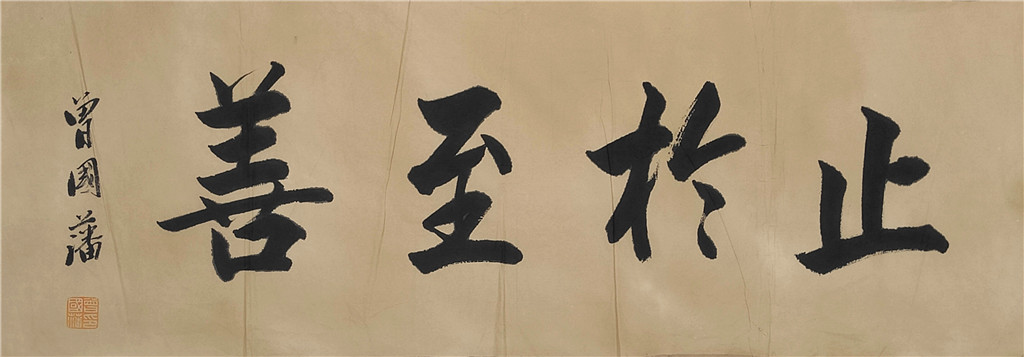 止於至善
曾國藩